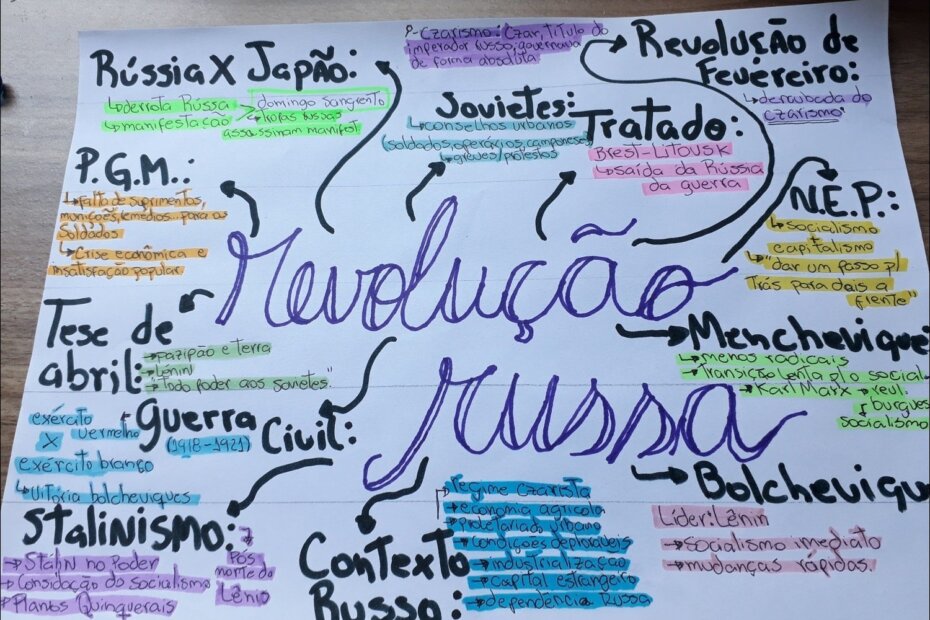 P-Czarismo: Czar, título do
imperador russo, governava
de forma absoluta
Rússia X Japão:
↳derrota Rússa
↳manifestação
domingo sangrento
↳tropas russas
assassinam manifest
Sovietes:
↳conselhos urbanos
(soldados, operários, camponeses)
↳greves/protestos
Revolução de
Fevereiro:
↳derrubada do
czarismo
Tratado:
Brest-Litovsk
↳saída da Rússia
da guerra
P.G.M.:
↳falta de suprimentos,
munições, remédios... para os
soldados
↳Crise econômica e
insatisfação popular
N.E.P.:
↳socialismo
+
capitalismo
↳"dar um passo p/
trás para dois a
frente"
Revolução
russa
Tese de
abril:
→paz, pão e terra
→Lênin
→"Todo poder aos sovietes"
Mencheviques
↳menos radicais
↳transição lenta p/ o social
→Karl Marx → revl.
burgues
↓
socialismo
Guerra
(1918-1921) Civil:
exército
vermelho
X
exército branco
↳Vitória bolcheviques
Bolcheviqu
Líder: Lênin
→socialismo imediato
→mudanças rápidas.
Stalinismo:
→Stálin no Poder
→Considação do socialismo
→Planos Quinquerais
↳Pós
morte do
Lênin
Contexto
Russo:
→regime czarista
→economia agrícola
→proletariado urbano
→condições deploráveis
→industrialização
→capital estrangeiro
→dependência Russa